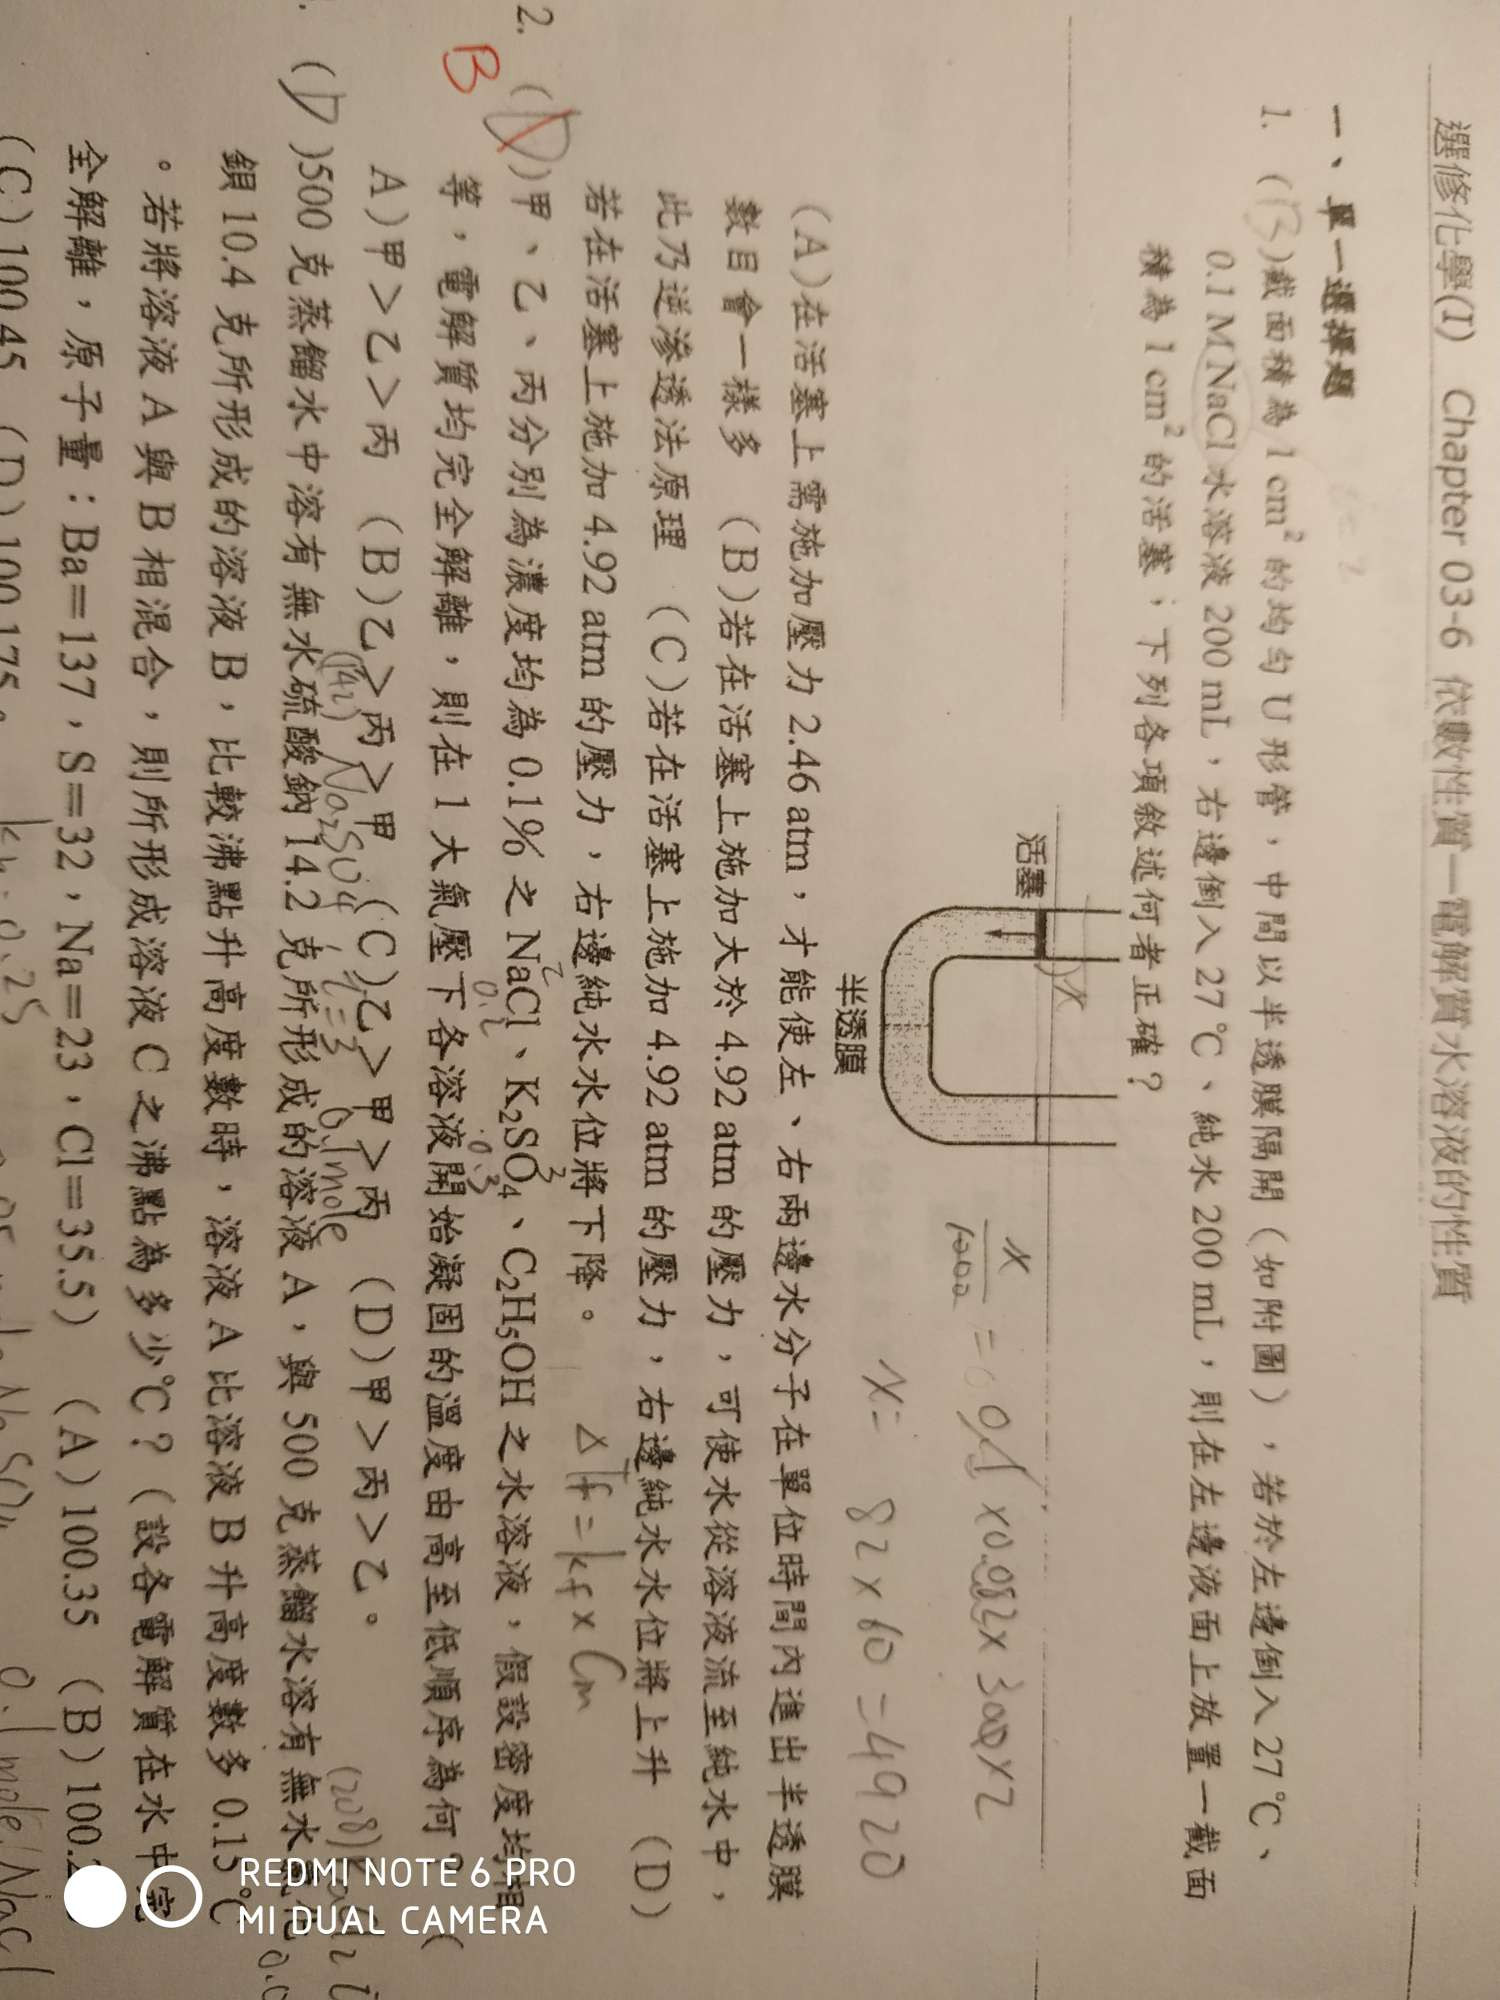 選修化學(I) Chapter 03-6 依數性質—電解質水溶液的性質
一、單一選擇題
1. (B)截面積為 1 cm² 的均勻 U 形管，中間以半透膜隔開（如附圖），若於左邊倒入 27 ℃、
0.1 M NaCl 水溶液 200 mL，右邊倒入 27 ℃、純水 200 mL，則在左邊液面上放置一截面
積為 1 cm² 的活塞；下列各項敘述何者正確？
活塞
半透膜
x
x/1000 = 0.1 × 0.082 × 300 × 2
x = 82 × 60 = 4920
(A)在活塞上需施加壓力 2.46 atm，才能使左、右兩邊水分子在單位時間內進出半透膜
數目會一樣多 (B)若在活塞上施加大於 4.92 atm 的壓力，可使水從溶液流至純水中，
此乃逆滲透法原理 (C)若在活塞上施加 4.92 atm 的壓力，右邊純水水位將上升 (D)
若在活塞上施加 4.92 atm 的壓力，右邊純水水位將下降。
ΔTf = kf × Cm
2. (D)甲、乙、丙分別為濃度均為 0.1% 之 NaCl、K₂SO₄、C₂H₅OH 之水溶液，假設密度均相
B
2 3
0.2 0.3
等，電解質均完全解離，則在 1 大氣壓下各溶液開始凝固的溫度由高至低順序為何？(
A)甲＞乙＞丙 (B)乙＞丙＞甲 (C)乙＞甲＞丙 (D)甲＞丙＞乙。
(142) Na₂SO₄ i=3 0.1mole
(208)
(D)500 克蒸餾水中溶有無水硫酸鈉 14.2 克所形成的溶液 A，與 500 克蒸餾水溶有無水氯化
鋇 10.4 克所形成的溶液 B，比較沸點升高度數時，溶液 A 比溶液 B 升高度數多 0.15 ℃
。若將溶液 A 與 B 相混合，則所形成溶液 C 之沸點為多少℃？（設各電解質在水中完
全解離，原子量：Ba＝137，S＝32，Na＝23，Cl＝35.5） (A)100.35 (B)100.2
(C)100.45 (D)100.175。
REDMI NOTE 6 PRO
MI DUAL CAMERA